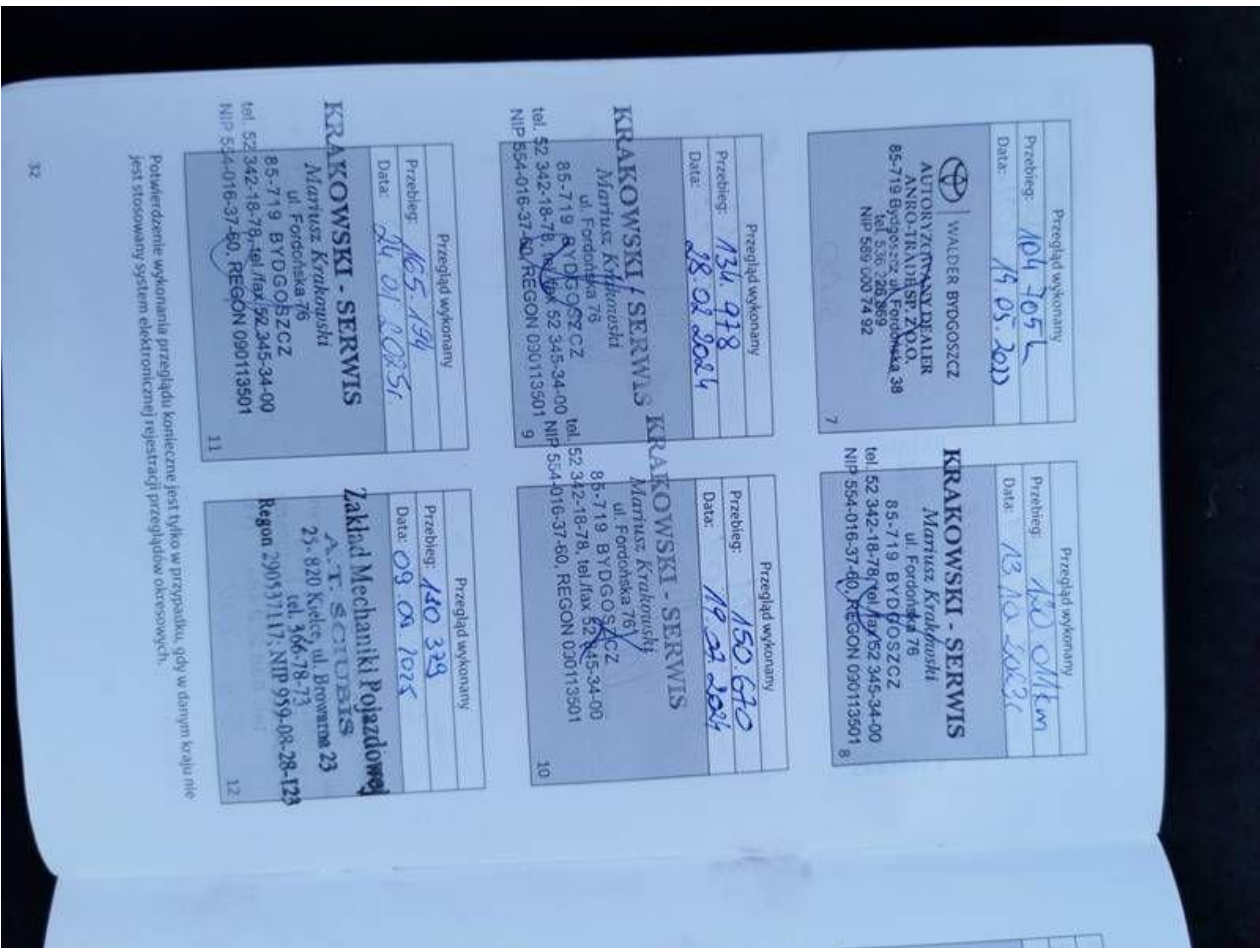 Przegląd wykonany
Przebieg: 104 705
Data: 19.05.2023
WALDER BYDGOSZCZ
AUTORYZOWANY DEALER
ANRO-TRADE SP. Z O.O.
85-719 Bydgoszcz ul. Fordońska 38
tel. 536 228 869
NIP 589 000 74 92
7
Przegląd wykonany
Przebieg: 120 011km
Data: 13 10 2023r
KRAKOWSKI - SERWIS
Mariusz Krakowski
ul. Fordońska 76
85-719 BYDGOSZCZ
tel. 52 342-18-78, tel./fax 52 345-34-00
NIP 554-016-37-60, REGON 090113501
8
Przegląd wykonany
Przebieg: 134.978
Data: 28.02 2024
KRAKOWSKI - SERWIS
Mariusz Krakowski
ul. Fordońska 76
85-719 BYDGOSZCZ
tel. 52 342-18-78, tel./fax 52 345-34-00
NIP 554-016-37-60, REGON 090113501
9
Przegląd wykonany
Przebieg: 150.670
Data: 19.07.2024
KRAKOWSKI - SERWIS
Mariusz Krakowski
ul. Fordońska 76
85-719 BYDGOSZCZ
tel. 52 342-18-78, tel./fax 52 345-34-00
NIP 554-016-37-60, REGON 090113501
10
Przegląd wykonany
Przebieg: 165.194
Data: 24 01 2025r
KRAKOWSKI - SERWIS
Mariusz Krakowski
ul. Fordońska 76
85-719 BYDGOSZCZ
tel. 52 342-18-78, tel./fax 52 345-34-00
NIP 554-016-37-60, REGON 090113501
11
Przegląd wykonany
Przebieg: 180 379
Data: 09 09 2025
Zakład Mechaniki Pojazdowej
A.T. SCIUBIS
25-820 Kielce, ul. Browarna 23
tel. 366-78-73
Regon 290537117, NIP 959-08-28-123
12
Potwierdzenie wykonania przeglądu konieczne jest tylko w przypadku, gdy w danym kraju nie
jest stosowany system elektronicznej rejestracji przeglądów okresowych.
32